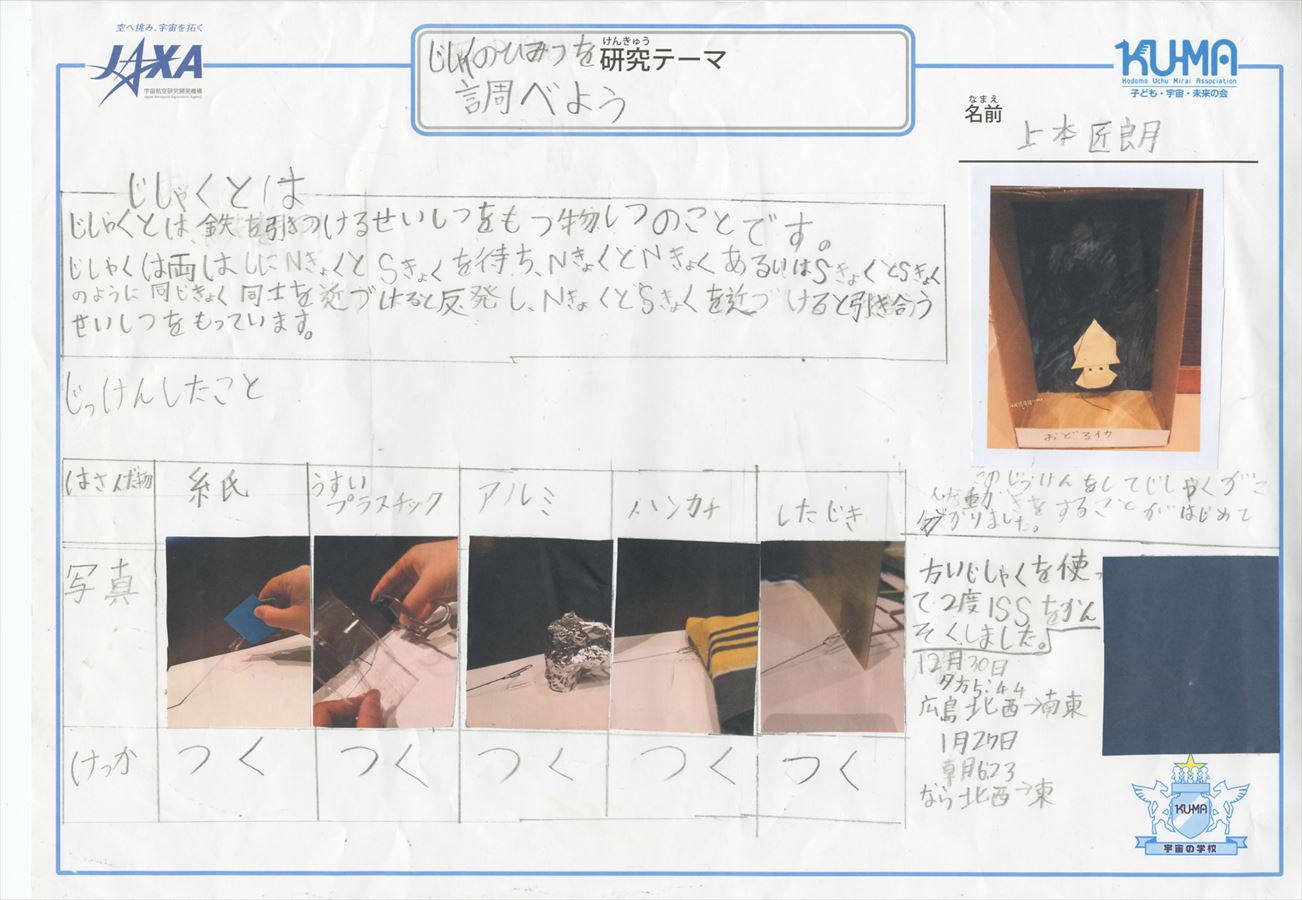 空へ挑み、宇宙を拓く
JAXA
宇宙航空研究開発機構
Japan Aerospace Exploration Agency
じしゃくのひみつを
けんきゅう
研究テーマ
調べよう
KU-MA
Kodomo Uchu Mirai Association
子ども・宇宙・未来の会
なまえ
名前
上本匠良月
じしゃくとは
じしゃくとは、鉄を引きつけるせいしつをもつ物しつのことです。
じしゃくは両はしにNきょくとSきょくを待ち、NきょくとNきょくあるいはSきょくとSきょく
のように同じきょく同士を近づけると反発し、NきょくとSきょくを近づけると引き合う
せいしつをもっています。
おどるイカ
じっけんしたこと
はさんだ物
糸氏
うすい
プラスチック
アルミ
ハンカチ
したじき
このじっけんをしてじしゃくがこ
んな動きをすることがはじめて
分かりました。
写真
方いじしゃくを使っ
て2度ISSをかん
そくしました。
12月30日
夕方5:44
広島 北西→南東
1月27日
朝6:23
なら 北西→東
けっか
つく
つく
つく
つく
つく
KU-MA
宇宙の学校